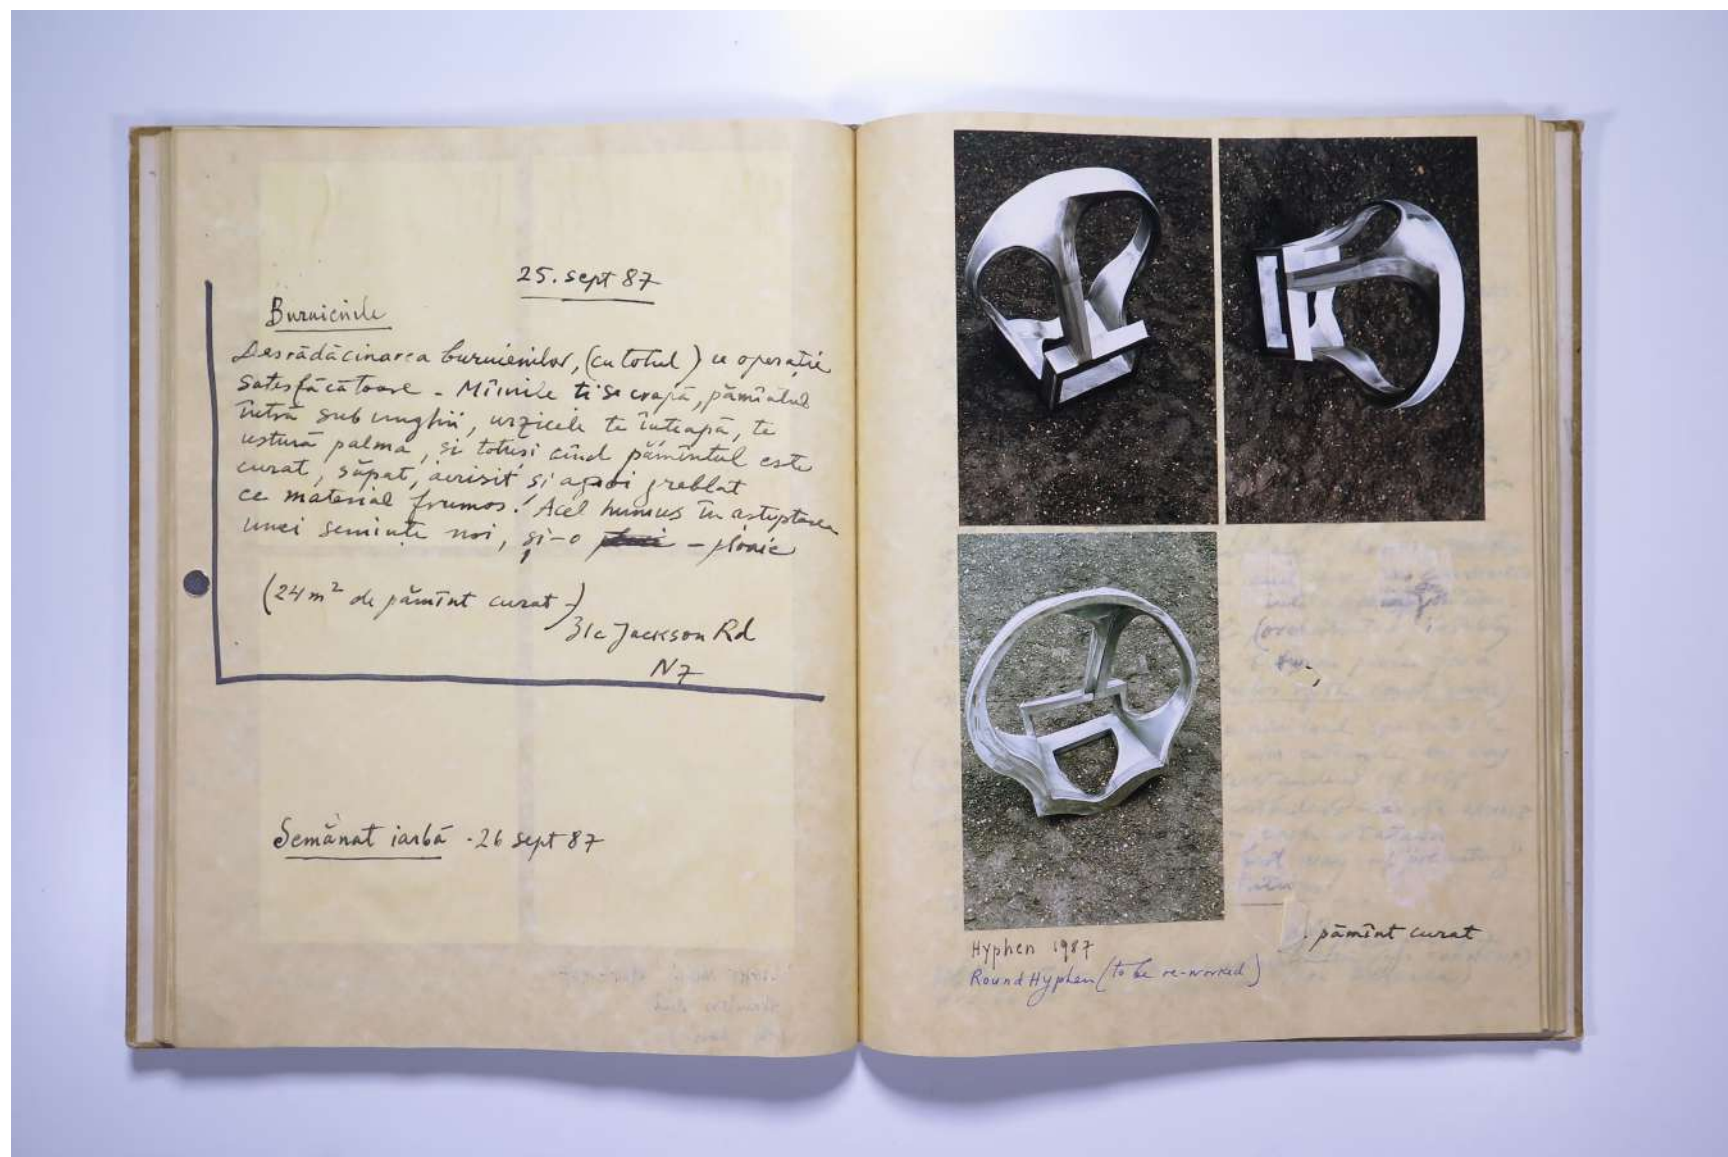 25. sept 87
Buruienile
Desrădăcinarea buruienilor, (cu totul) ce operație
satisfăcătoare - Mîinile ți se crapă, pămîntul
intră sub unghii, urzicele te înțeapă, te
ustură palma, și totuși cînd pămîntul este
curat, săpat, aerisit, și apoi greblat
ce material frumos! Acel humus în așteptarea
unei semințe noi, și-o - ploaie
(24 m² de pămînt curat -)
31c Jackson Rd
N7
Semănat iarbă - 26 sept 87
Hyphen 1987
Round Hyphen (to be re-worked)
pămînt curat